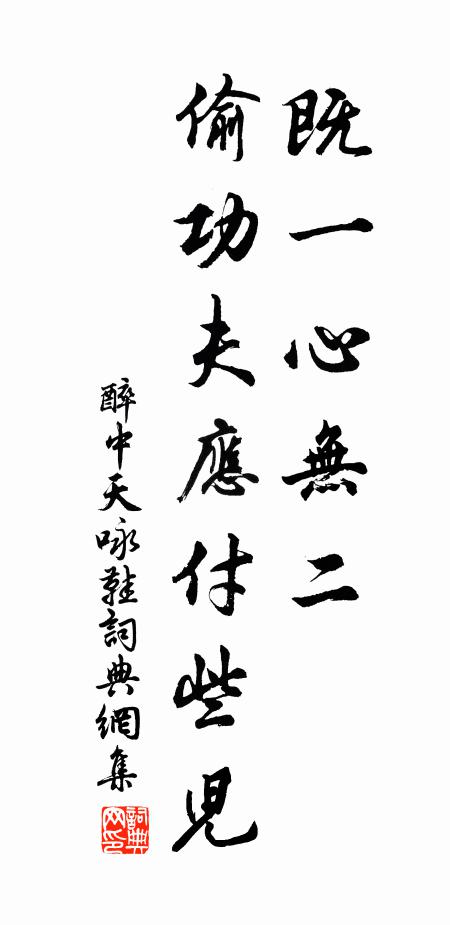 既一心無二
偷功夫應付些兒
醉中天咏鞋詞典網集
詞典网印